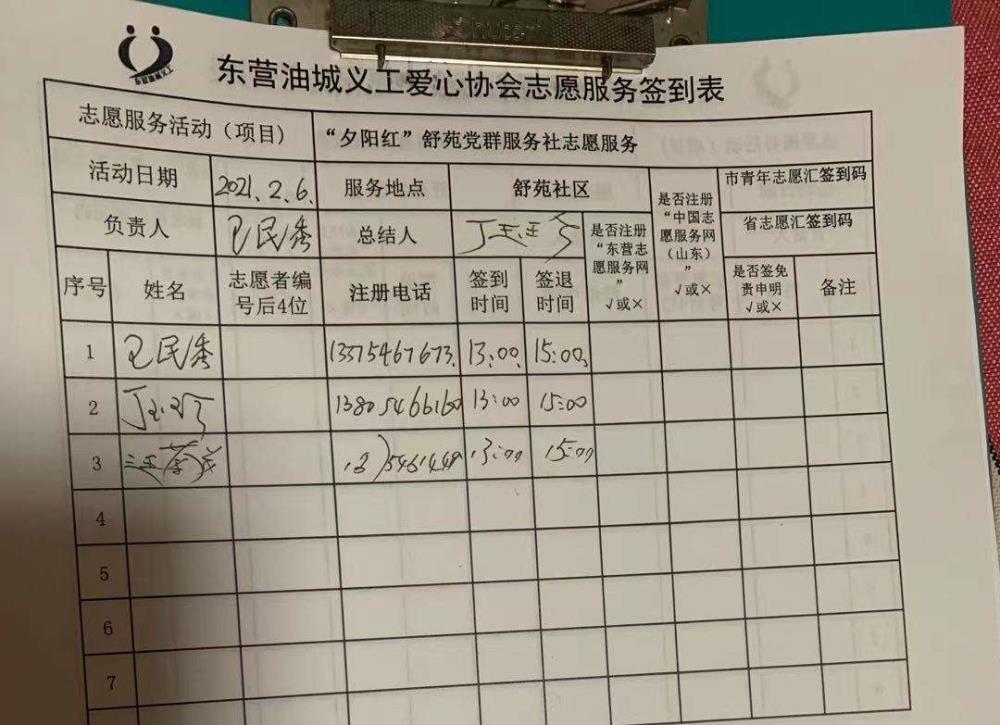 东营油城义工
东营油城义工爱心协会志愿服务签到表
志愿服务活动（项目） “夕阳红”舒苑党群服务社志愿服务
活动日期 2021.2.6. 服务地点 舒苑社区 是否注册“中国志愿服务网（山东）”√或× 市青年志愿汇签到码
负责人 民秀 总结人 丁玉 是否注册“东营志愿服务网”√或× 省志愿汇签到码
序号 姓名 志愿者编号后4位 注册电话 签到时间 签退时间 是否签免责申明√或× 备注
1 民秀 13375467673. 13:00 15:00
2 13805466160 13:00 15:00
3 13:00 15:00
4
5
6
7